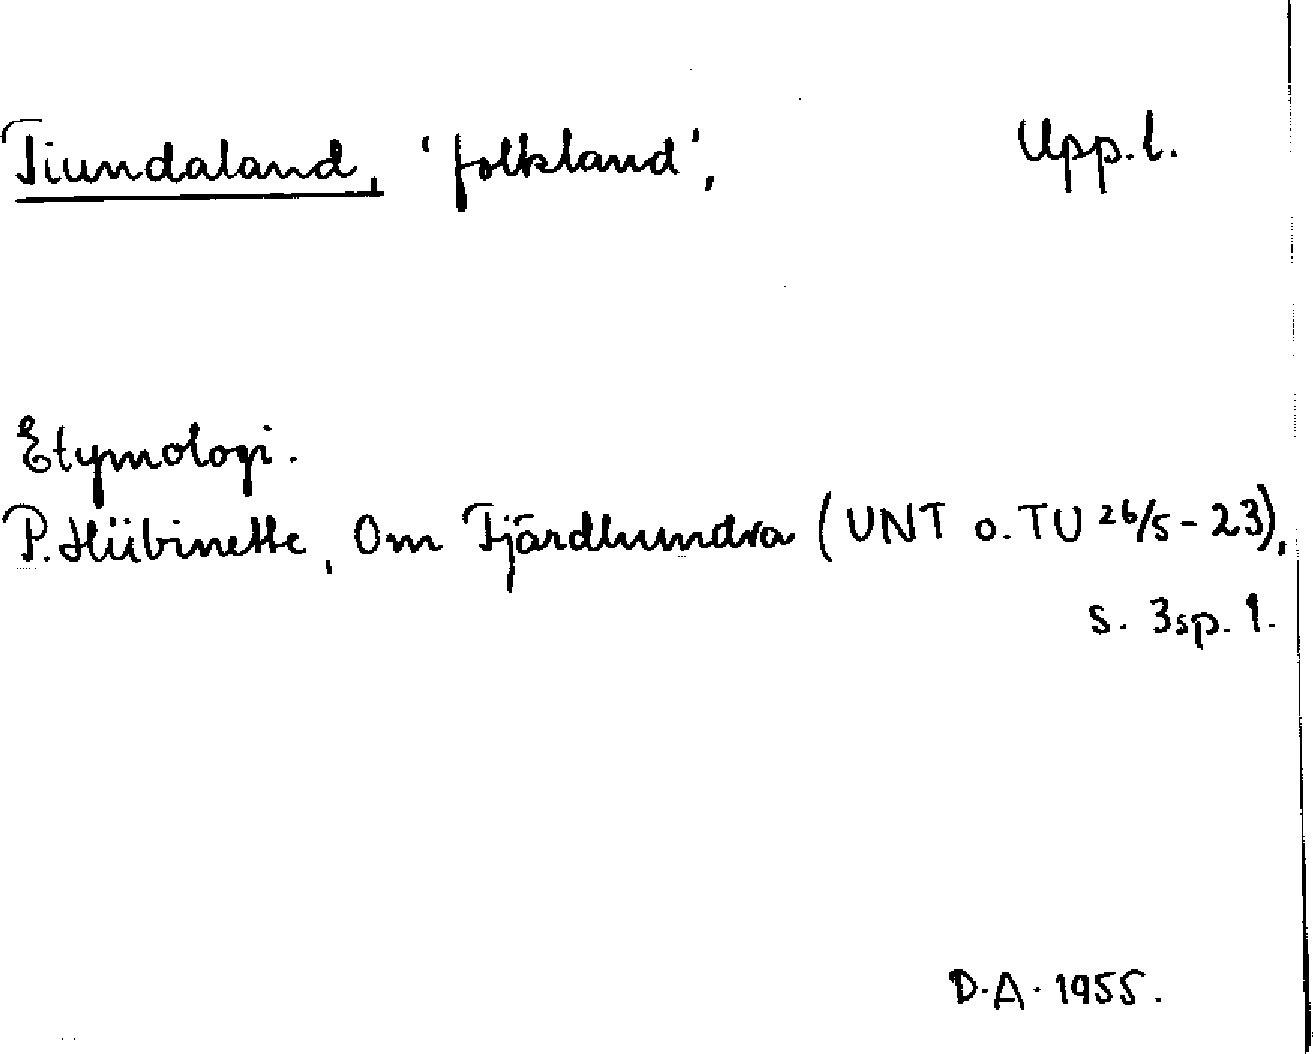 Tiundaland, 'folkland', Upp.l.
Etymologi.
P. Hübinette, Om Fjärdhundra (UNT o. TU 26/5-23),
s. 3 sp. 1.
D.A. 1955.